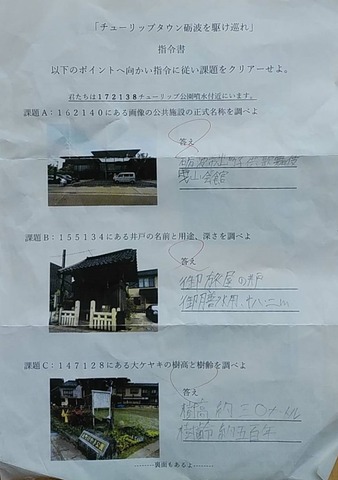 「チューリップタウン砺波を駆け巡れ」
指令書
以下のポイントへ向かい指令に従い課題をクリアーせよ。
君たちは172138チューリップ公園噴水付近にいます。
課題A：162140にある画像の公共施設の正式名称を調べよ
答え
曳山会館
課題B：155134にある井戸の名前と用途、深さを調べよ
答え
御旅屋の井戸
御膳水用、十八・二m
課題C：147128にある大ケヤキの樹高と樹齢を調べよ
答え
樹高 約三〇メートル
樹齢 約五百年
--------裏面もあるよ--------